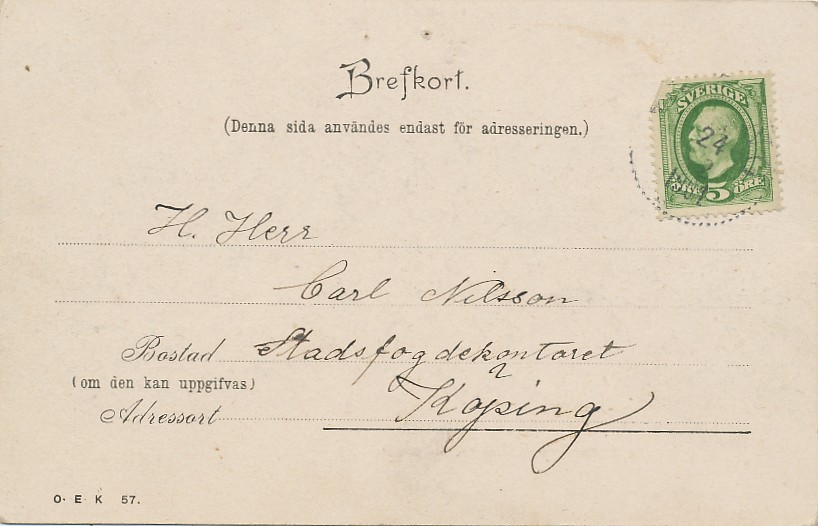 Brefkort.
(Denna sida användes endast för adresseringen.)
SVERIGE
24
5 ÖRE
H. Herr
Carl Nilsson
Bostad Stadsfogdekontoret
(om den kan uppgifvas)
Adressort Köping
O. E. K 57.